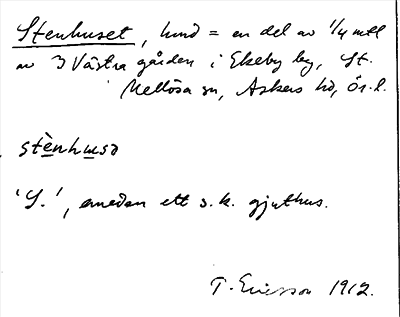 Stenhuset, lund = en del av 1/4 mtl
av 3 Västra gården i Ekeby by, St.
Mellösa sn, Askers hd, Ör. l.
stènhusə
'S.', emedan ett s.k. gjuthus.
T. Ericsson 1912.